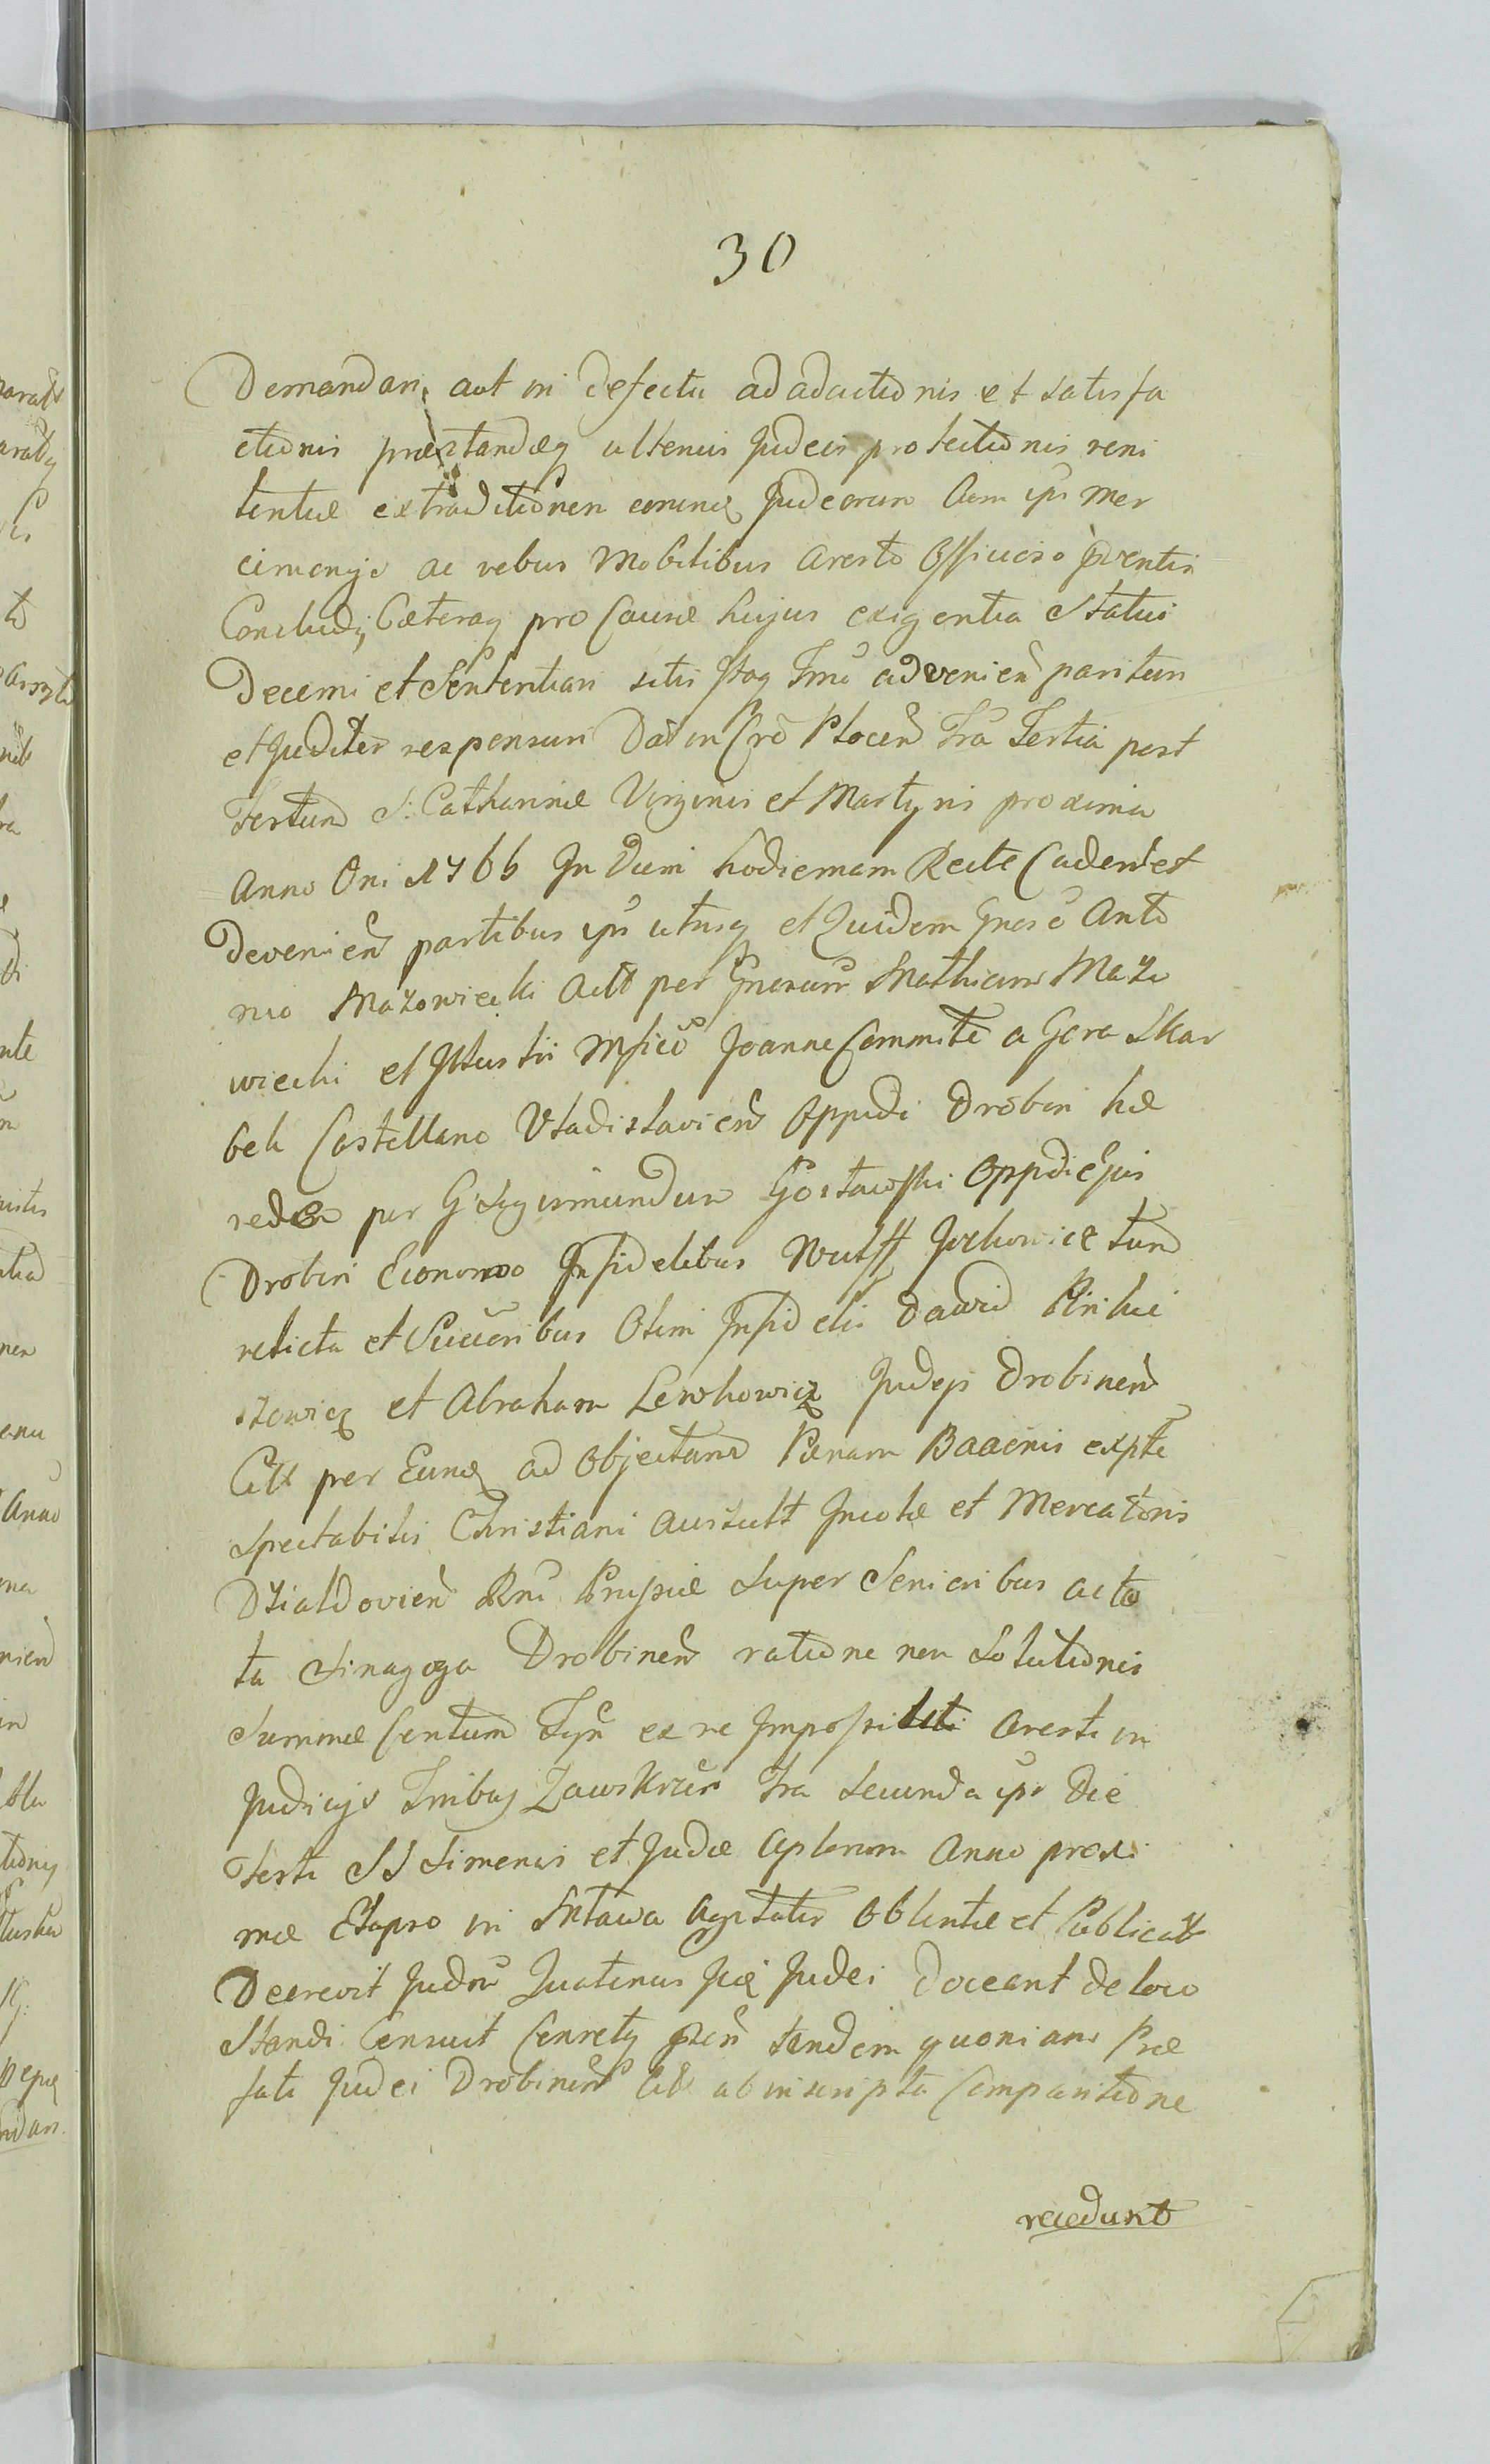 30
Demandari aut in defectu ad adactionis et satisfa
ctionis præstandæq ulterius Judeis protectionis reni
tentiæ extraditionem eorundq Judeorum Cum ipsis mer
cimonijs ac rebus Mobilibus aresto Officioso
Concludj, Cæteraq pro Causæ hujus exigentia Statui
Decerni et Sententiari satis advenien paritur
et Juditer responsuri Dat in Plocen Fra Tertia post
Festum S: Catharinæ Virginis et Martyris proxima
Anno Dni 1766 In Diem hodiernam Recte Caden et
Devenien partibus ipis utrisq et Quidem Gneso Anto
nio Mazowiecki Actt per Gnerum Mathiam Mazo
wiecki et Illustri Mfico Joanne Committe a Gora Skar
bek Castellano Vladislavien Oppidi Drobin hæ
rede per G Sigismundum Gostawski Oppidi ejus
Drobin Economo Infidelibus Wulff Jockowicz tum
relicta et Succoribus Olim Infidelis Dawid
szowicz et Abraham Lewkowicz Judeis Drobinen
Citt per Eundq ad Objectand Pænam Baaenis expte
Spectabilis Christiani Incolæ et Mercatoris
Dzialdovien Rni Prussiæ Super Senioribus
ta Sinagoga Drobinen ratione non Solutionis
Summæ Centum ex re Aresti in
Judicijs Zawskrzen Fra Secunda ipso Die
Festi SS Simonis et Judæ Aplorum Anno proxi
mæ Elapso in Mlawa Agitatis Obtentæ et Publicatt
Decrevit Judm Quatenus Judei Doceant de loco
Standi Censuit tandem quoniam Præ
fati Judei Drobinen Citt ab inscripta Comparitione
recedunt